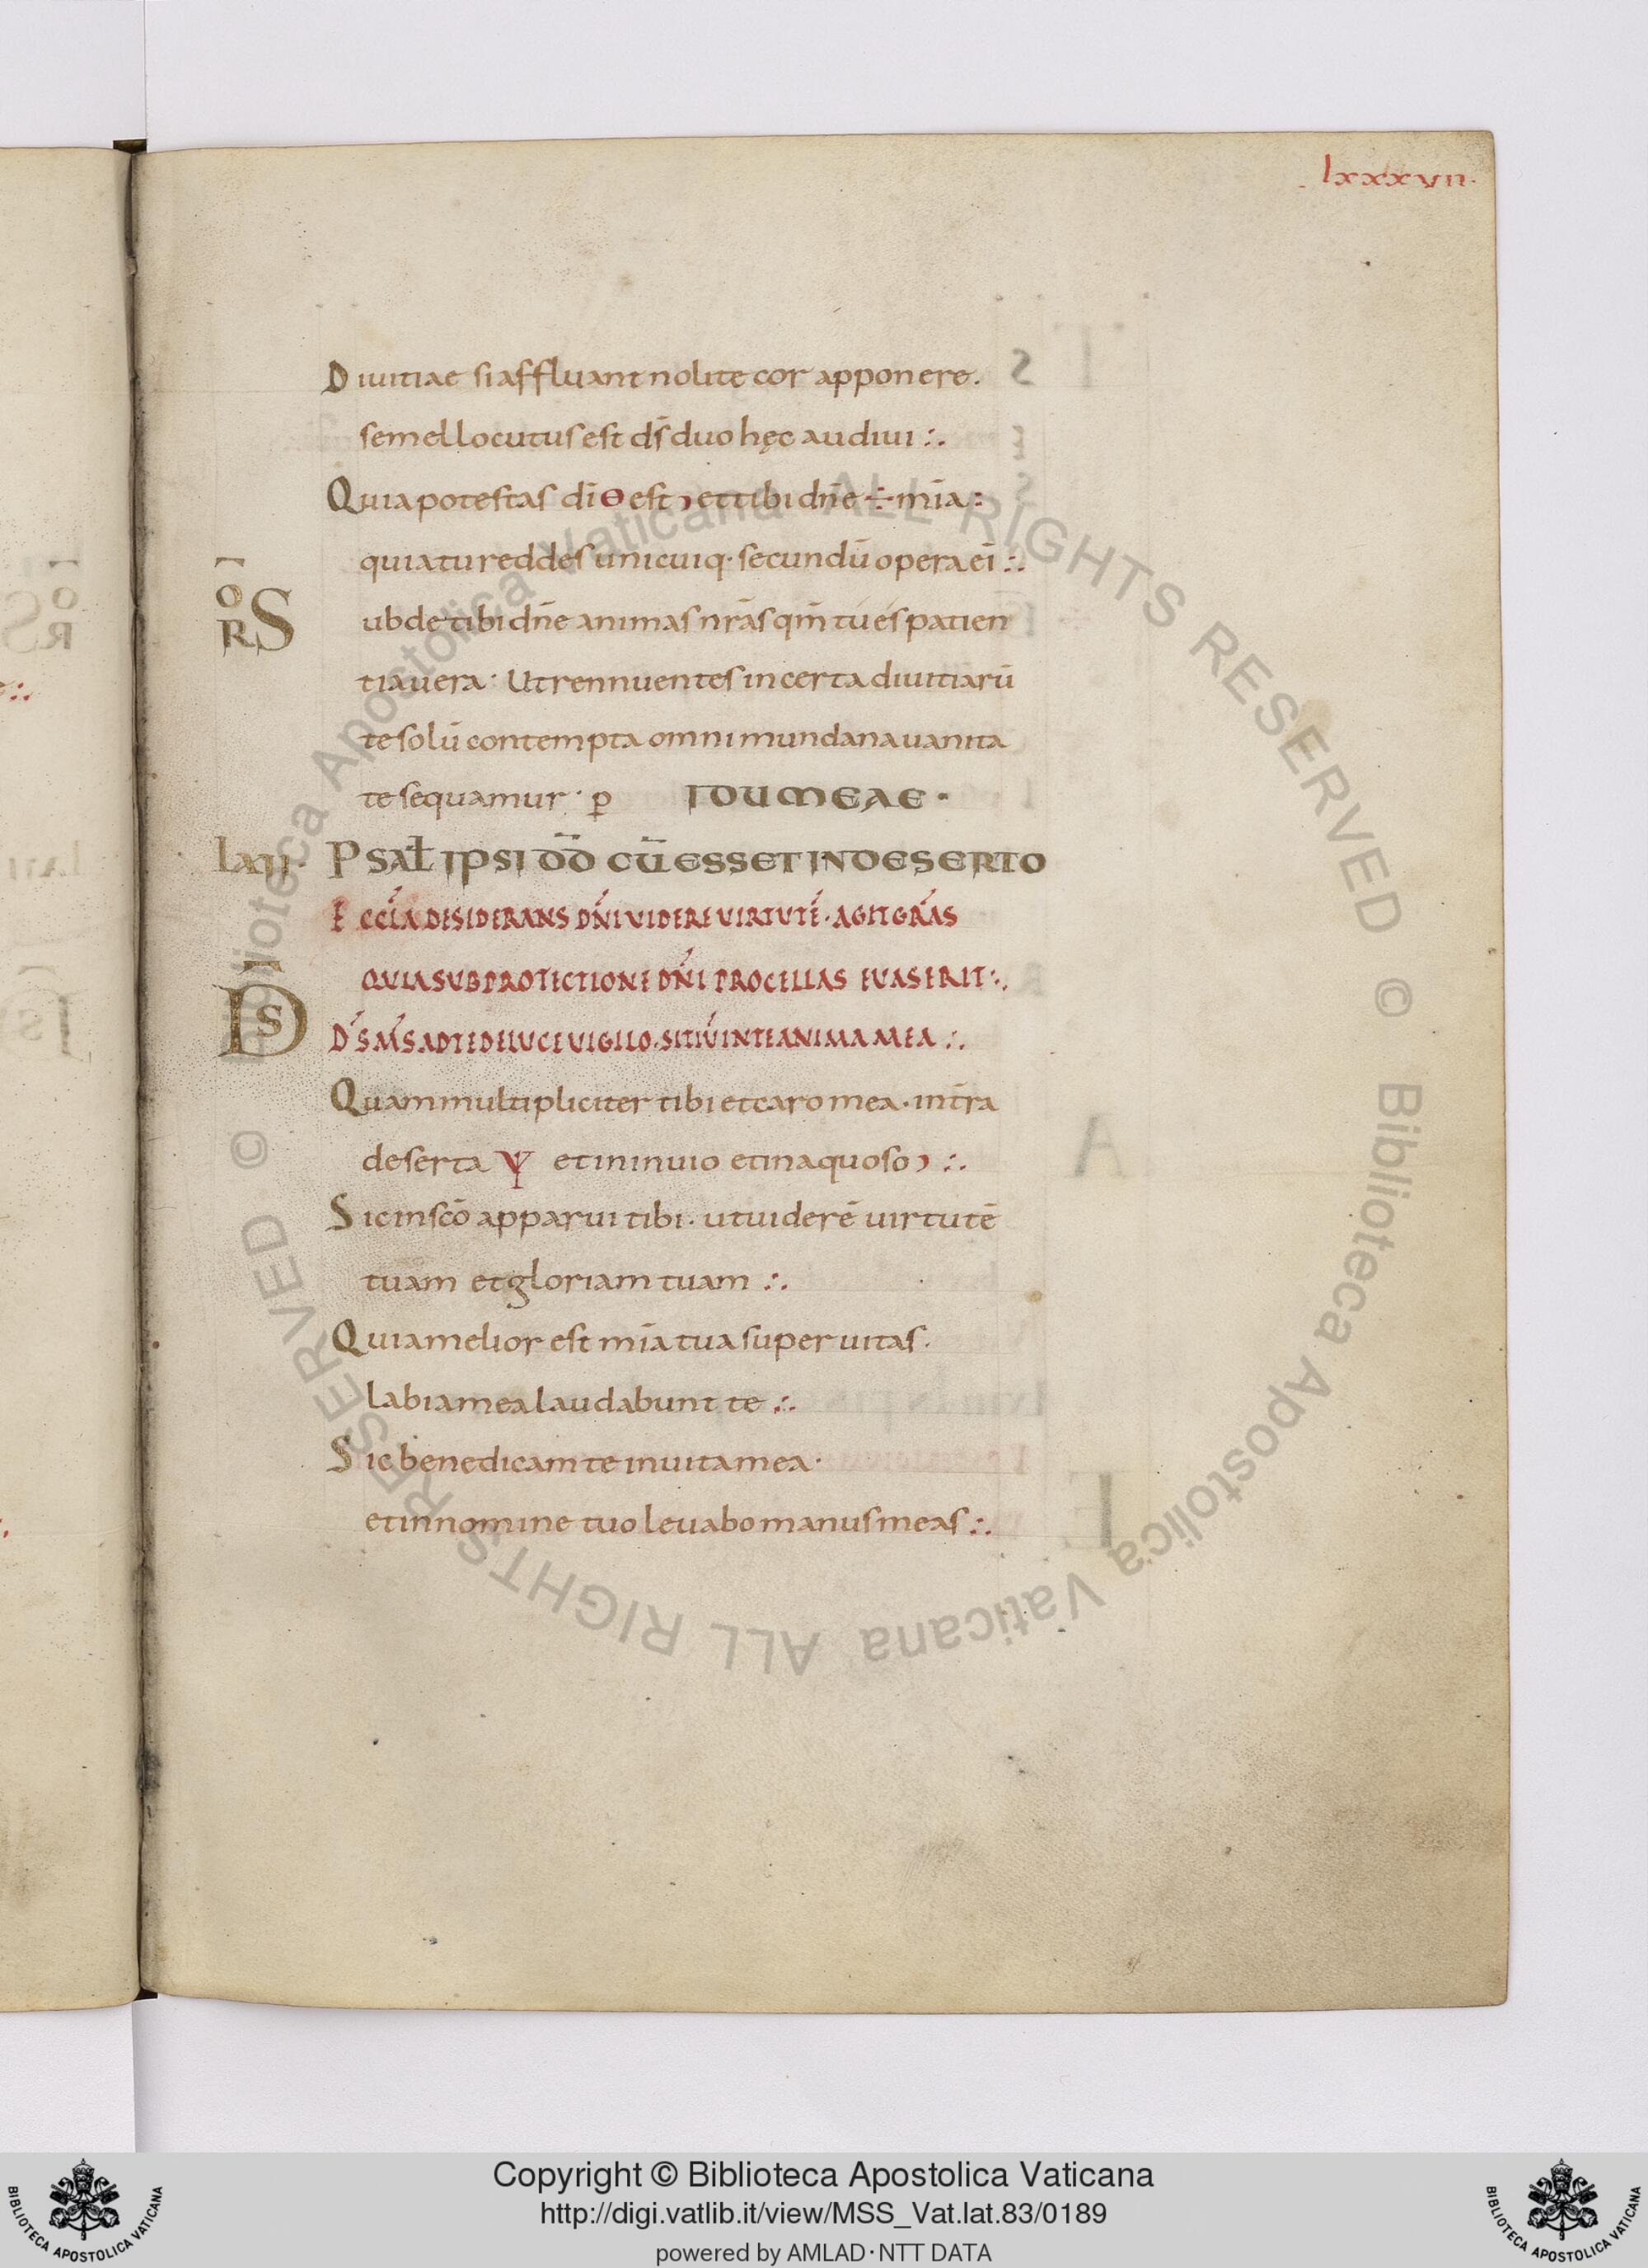 lxxxvii.
Diuitiae si affluant nolite cor apponere.
semel locutus est ds̄ duo hęc audiui :.
Quia potestas dī Ɵ est ϶ et tibi dn̄e ÷ mīa :
quia tu reddes unicuiq· secundū opera eī :.
ŌR S ubde tibi dn̄e animas nr̄as qm̄ tu es patien
tia uera· Ut rennuentes incerta diuitiarū
te solū contempta omni mundana uanita
te sequamur· p̲ IDUMEAE·
lxii. PSAL̄ IPSI DD̄ CŪ ESSET IN DESERTO
ECCL̄A DESIDERANS DN̄I VIDERE VIRTUTĒ· AGIT GRĀS
QUIA SUB PROTECTIONE DN̄I PROCELLAS EVASERIT :.
DS̄ DS̄ MS̄ AD TE DE LUCE VIGILO· SITIVIT IN TE ANIMA MEA :.
Quam multipliciter tibi et caro mea· in tr̄a
deserta ℣ et in inuio et inaquoso ϶ :.
Sic in scō apparui tibi· ut uiderē uirtutē
tuam et gloriam tuam :.
Quia melior est mīa tua super uitas·
labia mea laudabunt te :.
Sic benedicam te in uita mea·
et in nomine tuo leuabo manus meas :.
© Biblioteca Apostolica Vaticana ALL RIGHTS RESERVED © Biblioteca Apostolica Vaticana ALL RIGHTS RESERVED
Copyright © Biblioteca Apostolica Vaticana
http://digi.vatlib.it/view/MSS_Vat.lat.83/0189
powered by AMLAD·NTT DATA
BIBLIOTECA APOSTOLICA VATICANA
BIBLIOTECA APOSTOLICA VATICANA